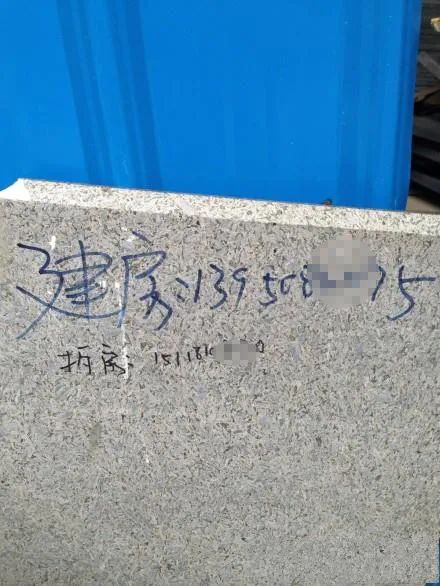 建房:139508 75
拆房:15118 0